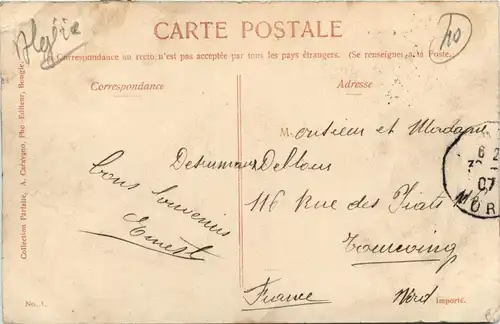 Algérie
CARTE POSTALE
40
La Correspondance au recto n'est pas acceptée par tous les pays étrangers. (Se renseigner à la Poste.
Correspondance
Adresse
Bons Souvenirs
Ernest
Monsieur et Madame
Desurmaux Dellour
116 Rue des Piats
Tourcoing
Nord
France
Collection Parfaite, A. Caravano, Pho.-Editeur, Bougie.
No. 1.
Importé.
6 2
07
OR